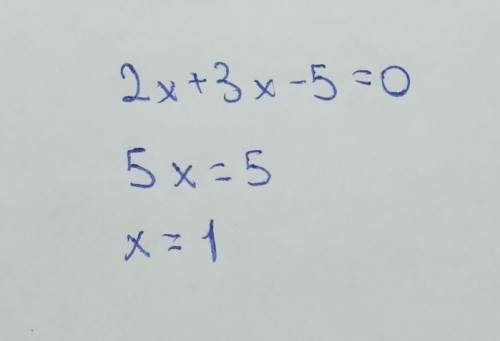 2x+3x-5=0
5x=5
x=1